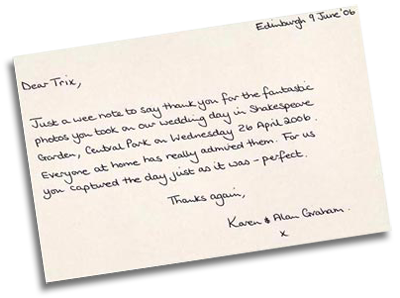 Edinburgh 9 June '06
Dear Trix,
Just a wee note to say thank you for the fantastic
photos you took on our wedding day in Shakespeare
Garden, Central Park on Wednesday 26 April 2006.
Everyone at home has really admired them. For us
you captured the day just as it was - perfect.
Thanks again,
Karen & Alan Graham.
x